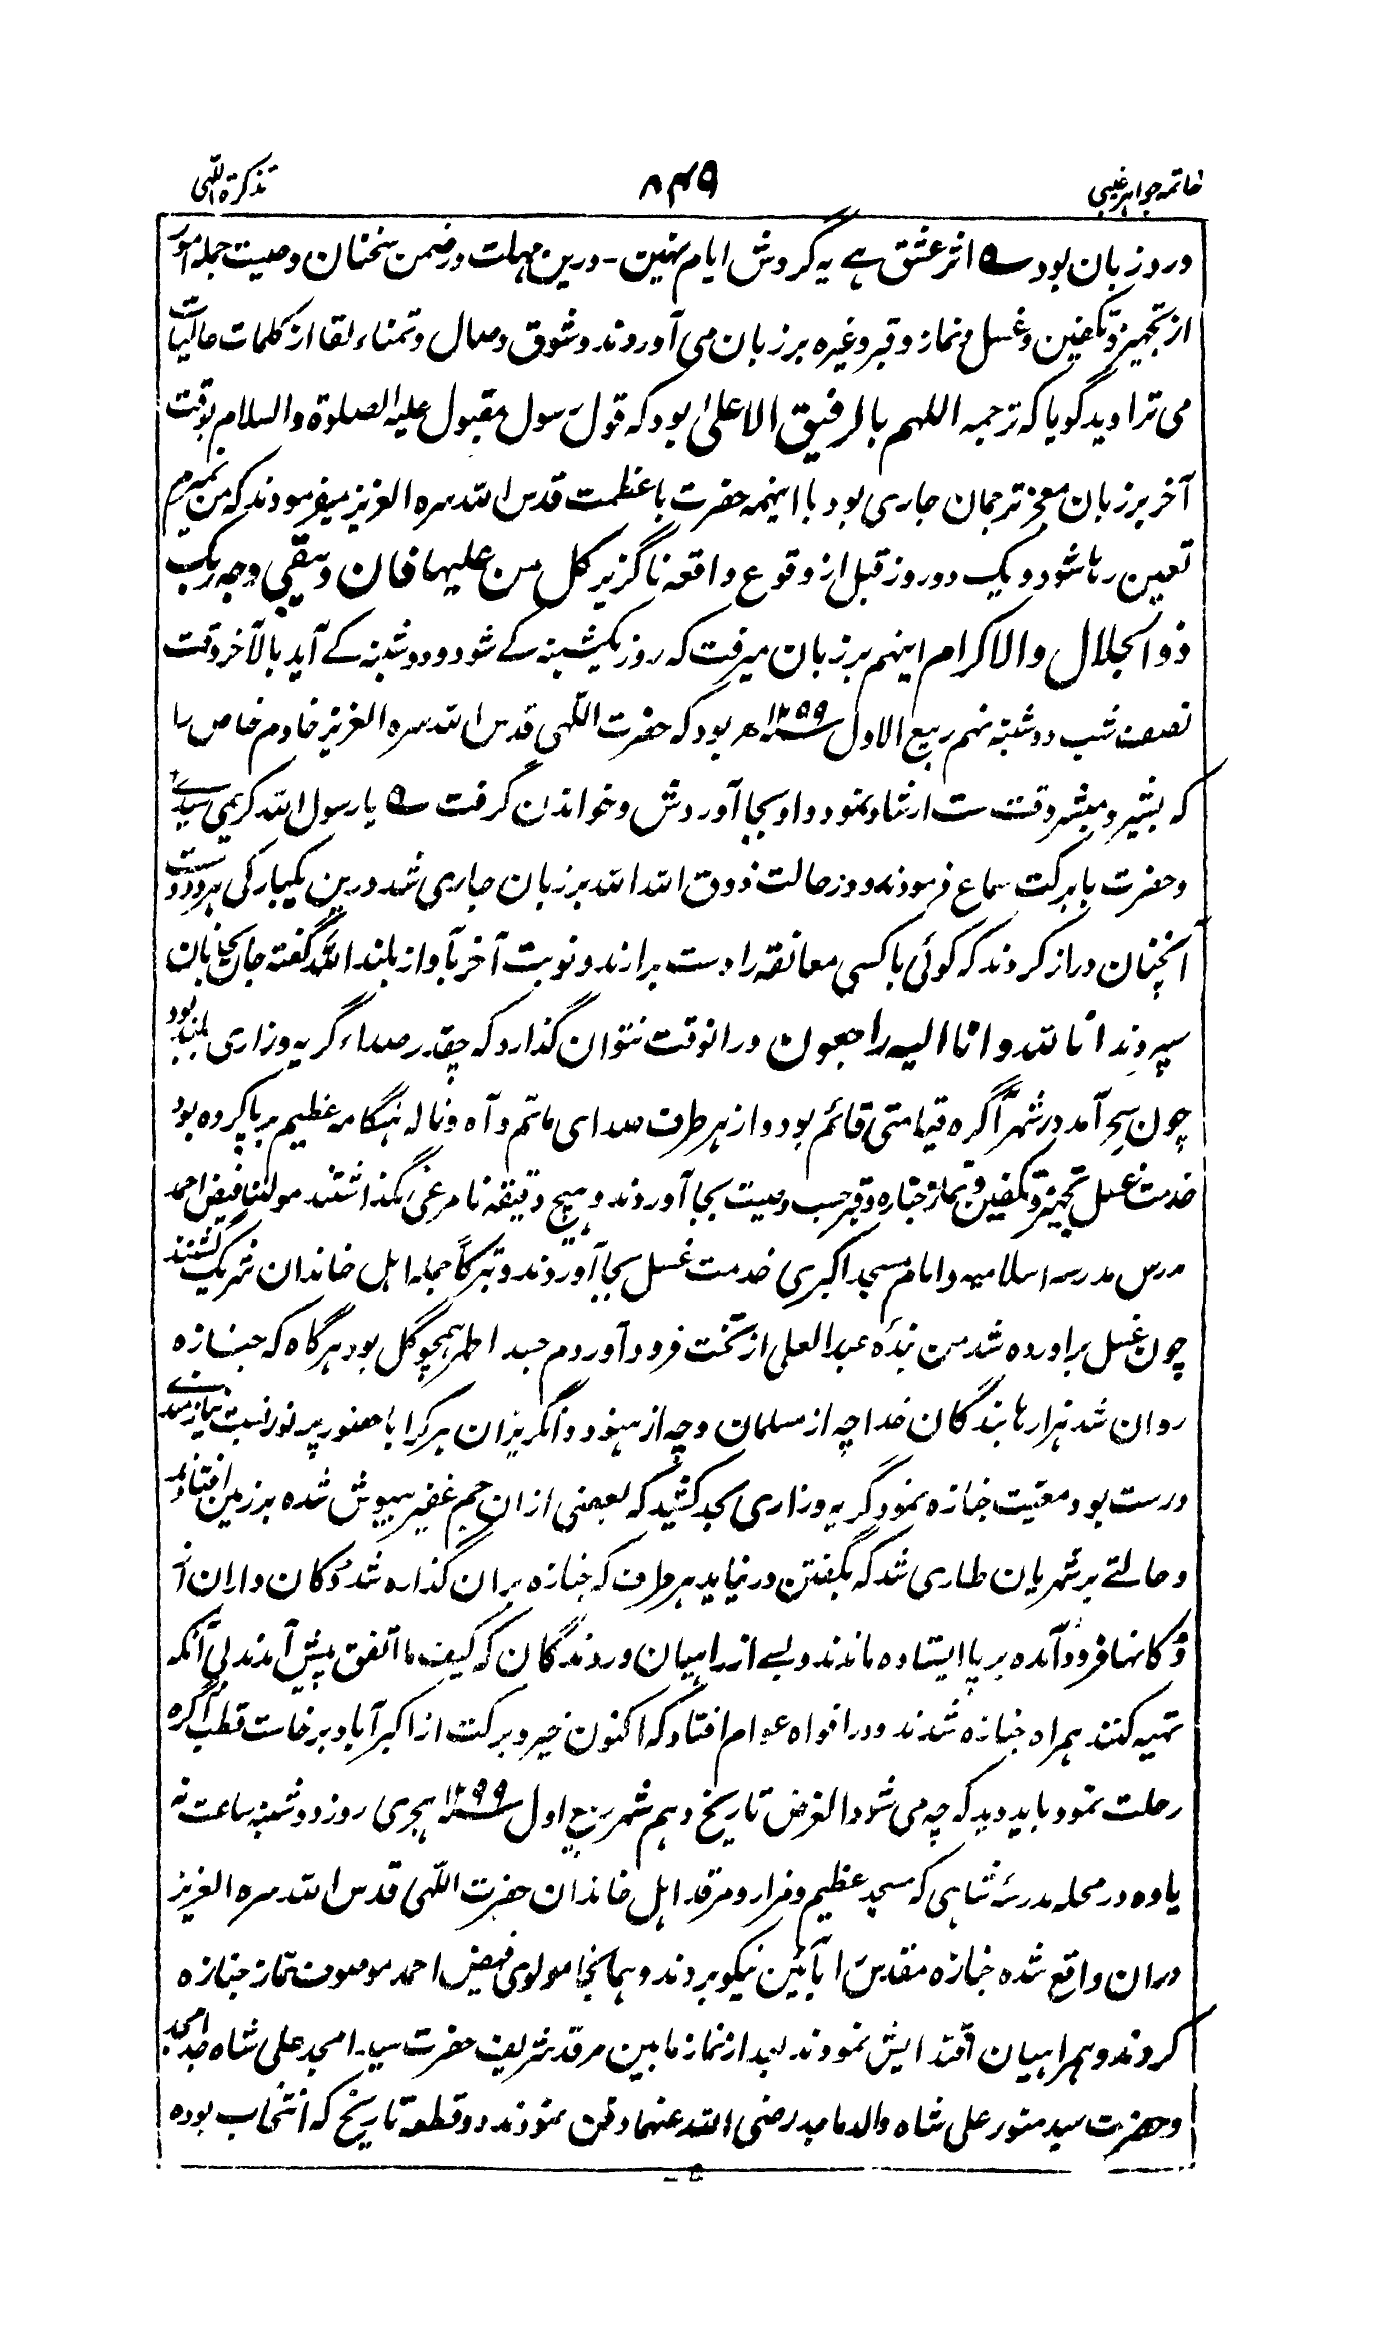 خاتمه جواهر غیبی ۸۴۹ تذکرة اللّهی
ورد زبان بود ے اثر عشق ہے یہ گردش ایام نہین - درین مہلت در ضمن سخنان وصیت جملہ امور
از تجهیز و تکفین و غسل و نماز و قبر وغیره بر زبان می آوردند و شوق وصال و تمناء لقا از کلمات حالیات
می تراوید گویا که ترجمه اللهم بالرفیق الاعلیٰ بود که قول رسول مقبول علیه الصلوة والسلام بوقت
آخر بر زبان معجز ترجمان جاری بود با اینهمه حضرت با عظمت قدس الله سره العزیز میفرمودند که من نمیرم
تعین رها شود و یک دو روز قبل از وقوع واقعه ناگزیر کل من علیها فان ویبقی وجه ربک
ذوالجلال والاکرام اینهم بر زبان میرفت که روز یکشنبه کے شود و دوشنبه کے آید بالآخر وقت
نصف شب دوشنبه نهم ربیع الاول ۱۲۹۹ھ بود که حضرت اللّهی قدس الله سره العزیز خادم خاص را
که بشیر و مبشر وقت ست ارشاد نمود و او بجا آوردش و خواندن گرفت ے یا رسول الله کریمی سیدے
و حضرت بابرکت سماع فرمودند و در حالت ذوق الله الله بر زبان جاری شد درین یکبارگی هر دو دست
آنچنان دراز کردند که گوئی با کسی معانقه را دست برارند و نوبت آخر بآواز بلند الله گفته جان بجانان
سپردند انا لله وانا الیه راجعون در انوقت نتوان گذارد که چقدر صداء گریه و زاری بلند بود
چون سحر آمد در شهر آگره قیامتی قائم بود و از هر طرف صدای ماتم و آه و ناله هنگامه عظیم برپا کرده بود
خدمت غسل تجهیز و تکفین و نماز جنازه و قبر حسب وصیت بجا آوردند و هیچ دقیقه نامرعی نگذاشتند مولٰنا فیض احمد
مدرس مدرسه اسلامیه و امام مسجد اکبری خدمت غسل بجا آوردند و تبرکاً جمله اهل خاندان شریک گشتند
چون غسل براورده شد من بندۂ عبد العلی از تخت فرود آوردم جسد اطهر همچو گل بود هرگاه که جنازه
روان شد هزارها بندگان خدا چه از مسلمان و چه از هنود و انگریزان هر کرا با حضور پر نور نسبت نیازمندے
درست بود معیت جنازه نمود گریه و زاری بحد کشید که بعضی ازان جم غفیر بیهوش شده بر زمین افتادند
و حالتے بر شهریان طاری شد که بگفتن در نیاید هر طرف که جنازه بران گذاره شد دُکان داران از
دُکانها فرود آمده برپا ایستاده ماندند و بسے از راهیان و روندگان که کیف ما اتفق پیش آمدند بی آنکه
تهیه کنند همراه جنازه شدند و در افواه عوام افتاد که اکنون خیر و برکت از اکبرآباد برخاست قطب آگره
رحلت نمود باید دید که چه می شود الغرض تاریخ دهم شهر ربیع اول ۱۲۹۹ هجری روز دوشنبه ساعت نه
یا ده در محله مدرسۂ شاهی که مسجد عظیم و مزار و مرقد اهل خاندان حضرت اللّهی قدس الله سره العزیز
دران واقع شده جنازه مقدس را بآئین نیکو بردند و همانجا مولوی فیض احمد موصوف نماز جنازه
کردند و همراهیان اقتدایش نمودند بعد از نماز ما بین مرقد شریف حضرت سید امجد علی شاه جد امجد
و حضرت سید منور علی شاه والد ماجد رضی الله عنهما دفن نمودند دو قطعه تاریخ که انتخاب بوده